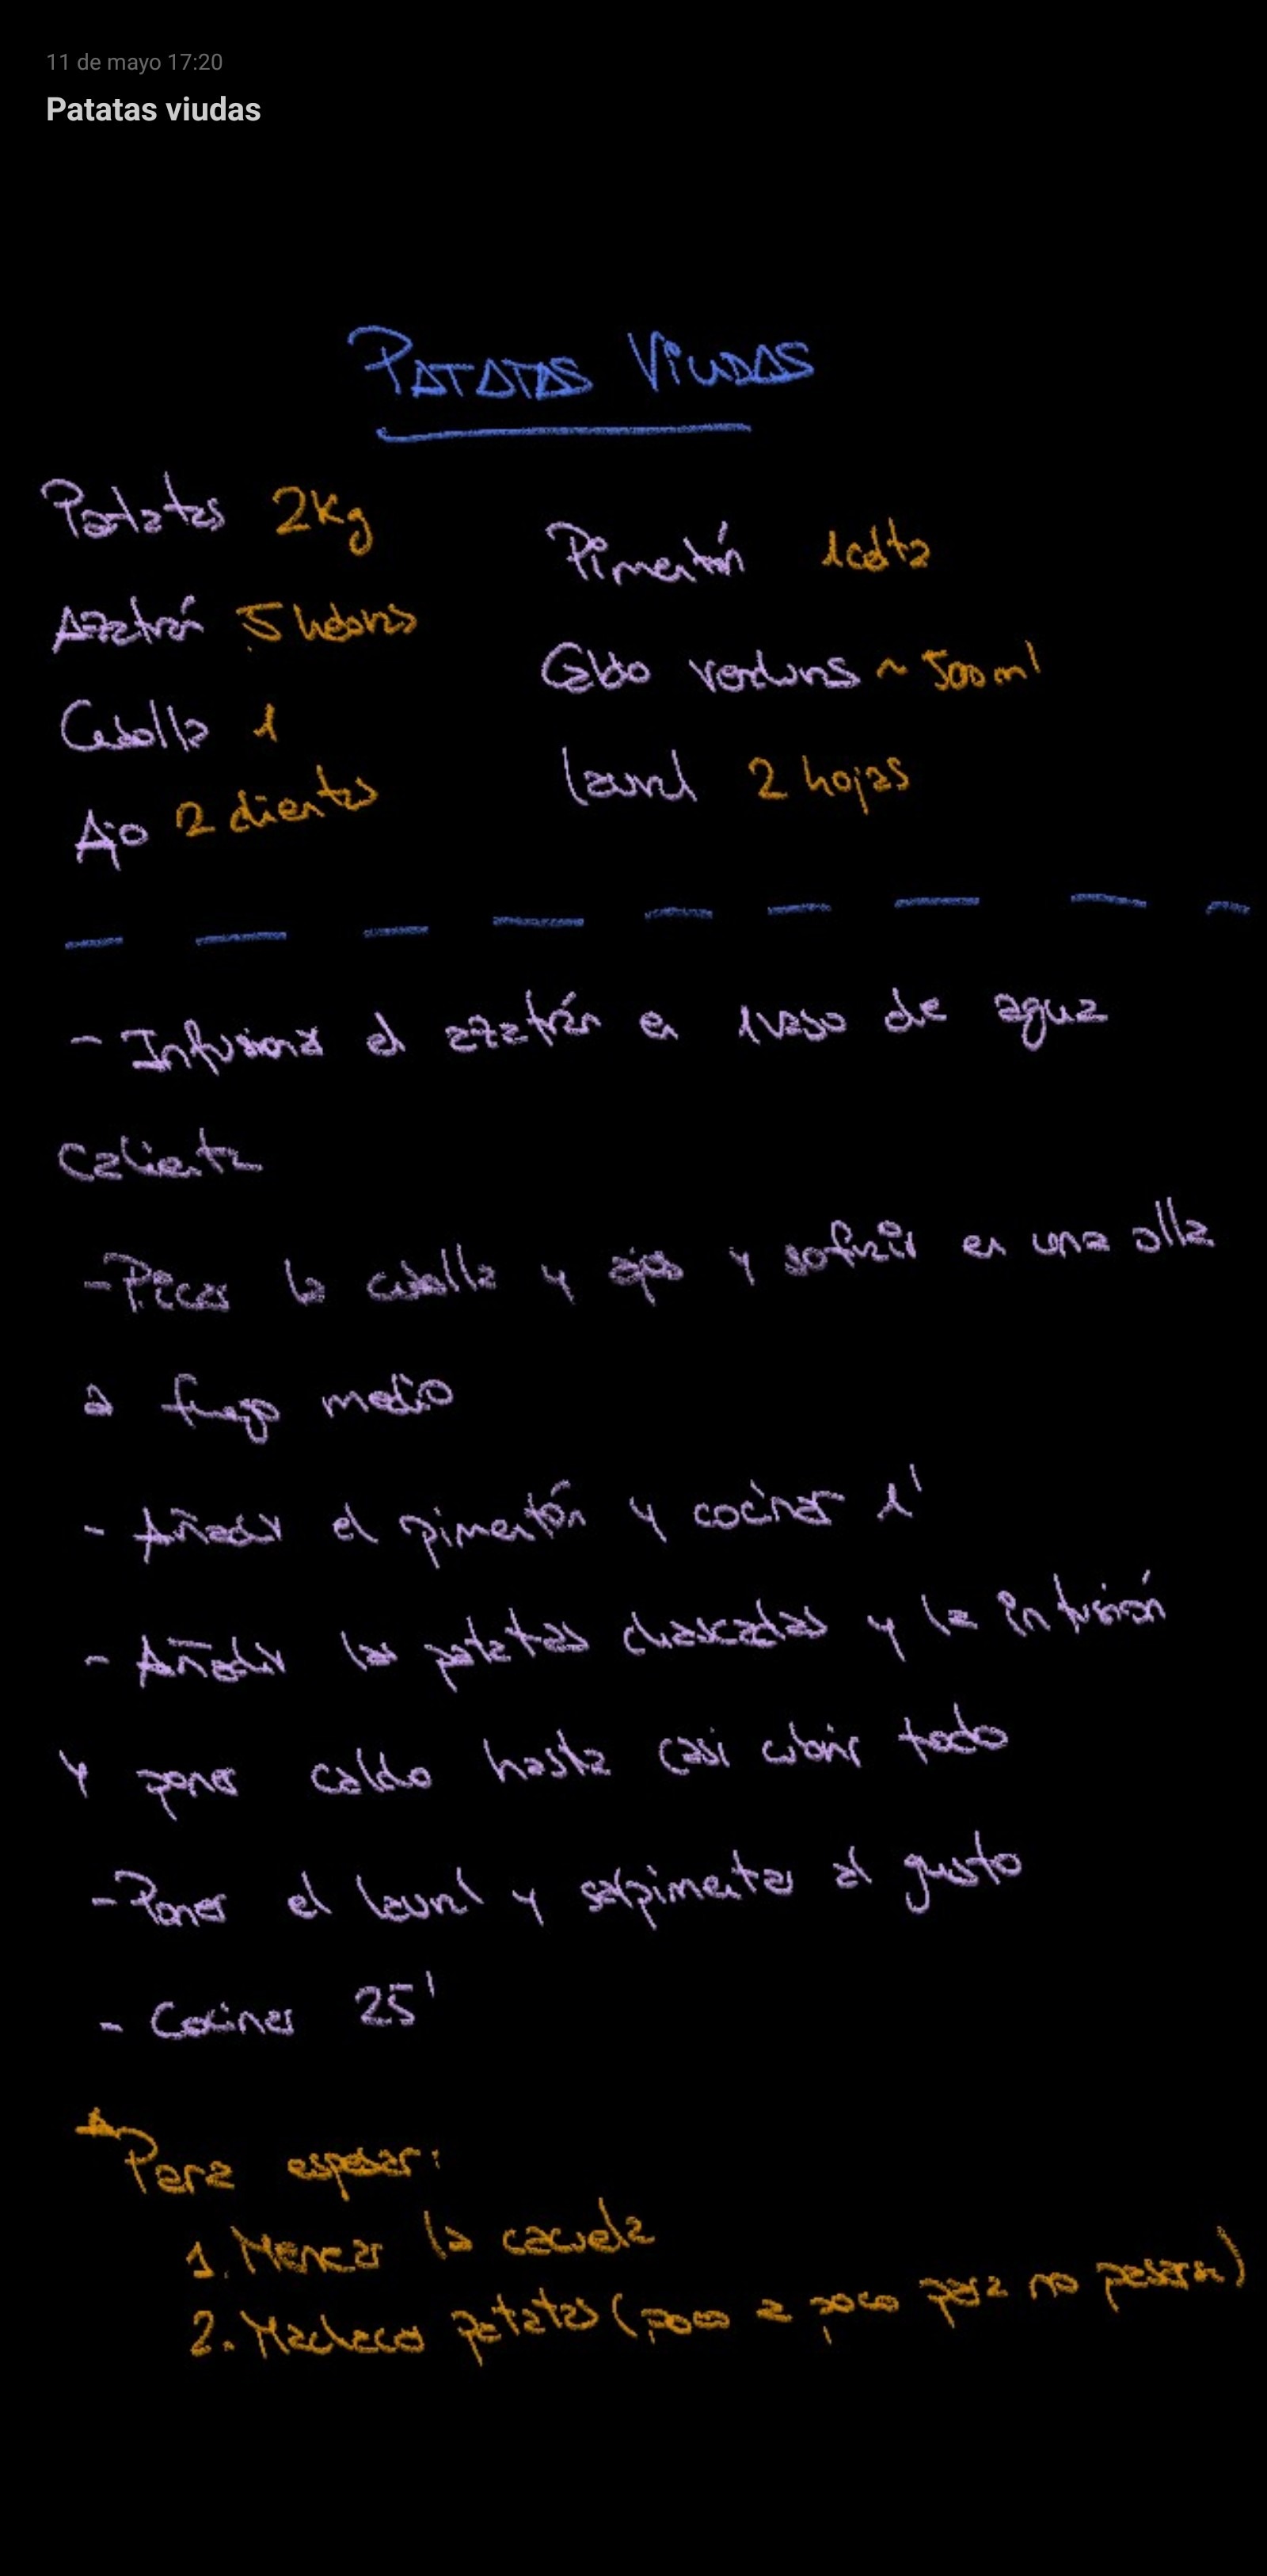 11 de mayo 17:20
Patatas viudas
PATATAS VIUDAS
Patatas 2Kg
Azafrán 5 hebras
Cebolla 1
Ajo 2 dientes
Pimentón 1cdta
Caldo verduras ~ 500ml
laurel 2 hojas
- Infusionar el azafrán en 1 vaso de agua
caliente
- Picar la cebolla y ajos y sofreír en una olla
a fuego medio
- Añadir el pimentón y cocinar 1'
- Añadir las patatas chascadas y la infusión
y poner caldo hasta casi cubrir todo
- Poner el laurel y salpimentar al gusto
- Cocinar 25'
* Para espesar:
1. Menear la cazuela
2. Machacar patatas (poco a poco para no pasarse)